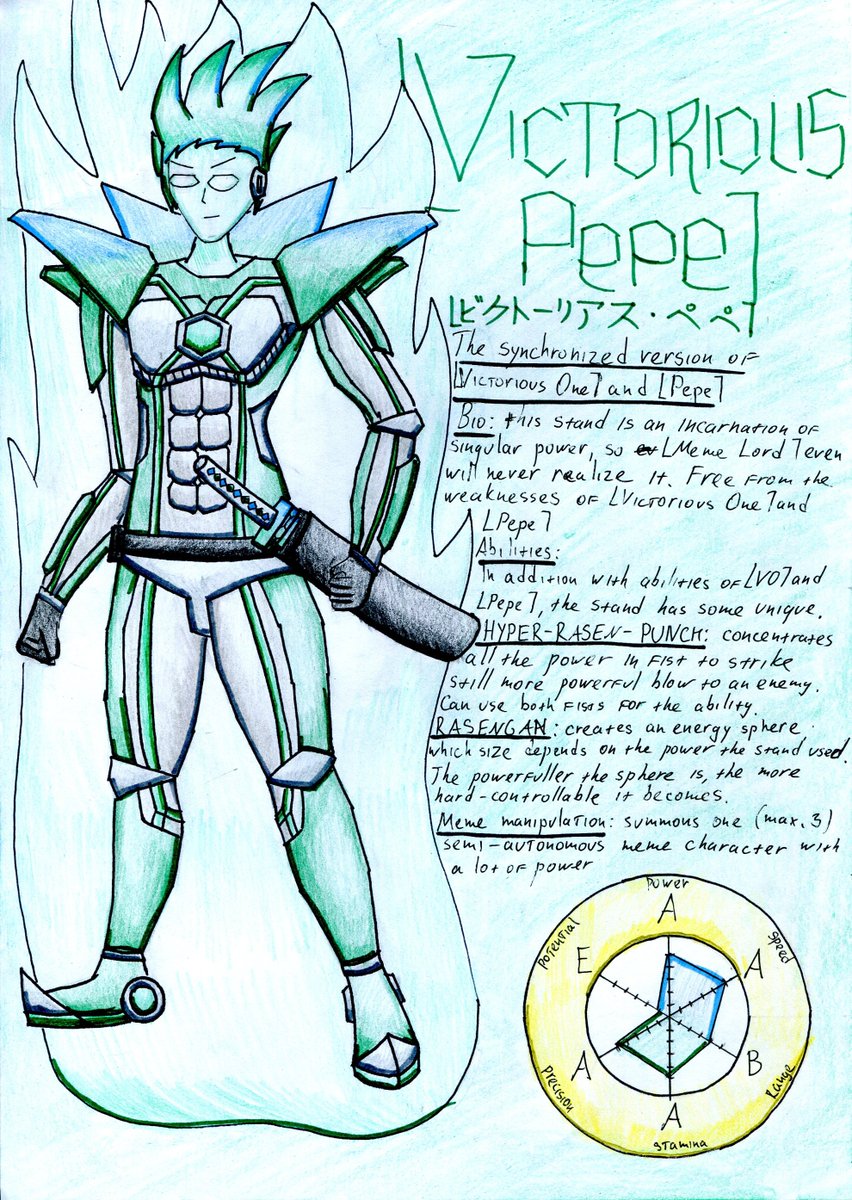 Victorious
Pepe」
「ビクトーリアス・ペペ」
The synchronized version of
「Victorious One」 and 「Pepe」
Bio: this stand is an incarnation of
singular power, so 「Meme Lord」 even
will never realize it. Free from the
weaknesses of 「Victorious One」 and
「Pepe」
Abilities:
In addition with abilities of 「VO」 and
「Pepe」, the stand has some unique.
HYPER-RASEN-PUNCH: concentrates
all the power in fist to strike
still more powerful blow to an enemy.
Can use both fists for the ability.
RASENGAN: creates an energy sphere,
which size depends on the power the stand used.
The powerfuller the sphere is, the more
hard-controllable it becomes.
Meme manipulation: summons one (max. 3)
semi-autonomous meme character with
a lot of power
Power
A
Speed
A
Range
B
Stamina
A
Precision
A
Potential
E